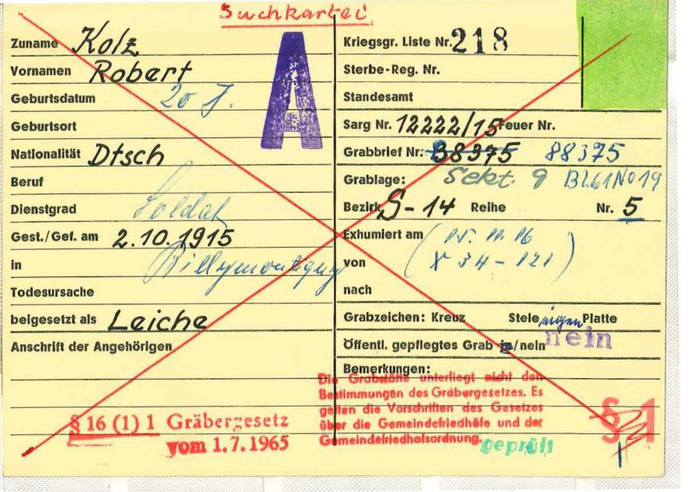 Suchkartei
Zuname Kolz
Vornamen Robert
Geburtsdatum 20 J.
Geburtsort
Nationalität Dtsch
Beruf
Dienstgrad Soldat
Gest./Gef. am 2.10.1915
in Billymontigny
Todesursache
beigesetzt als Leiche
Anschrift der Angehörigen
A
§ 16 (1) 1 Gräbergesetz
vom 1.7.1965
Kriegsgr. Liste Nr. 218
Sterbe-Reg. Nr.
Standesamt
Sarg Nr. 12222/15 Feuer Nr.
Grabbrief Nr. 38375 88375
Grablage: Sekt. 9 Bl61No19
Bezirk S-14 Reihe Nr. 5
Exhumiert am
von X 34-121)
nach
Grabzeichen: Kreuz Stele eigen Platte
Öffentl. gepflegtes Grab ja/nein nein
Bemerkungen:
Die Grabstätte unterliegt nicht den
Bestimmungen des Gräbergesetzes. Es
gelten die Vorschriften des Gesetzes
über die Gemeindefriedhöfe und der
Gemeindefriedhofsordnung.
geprüft
§ 1